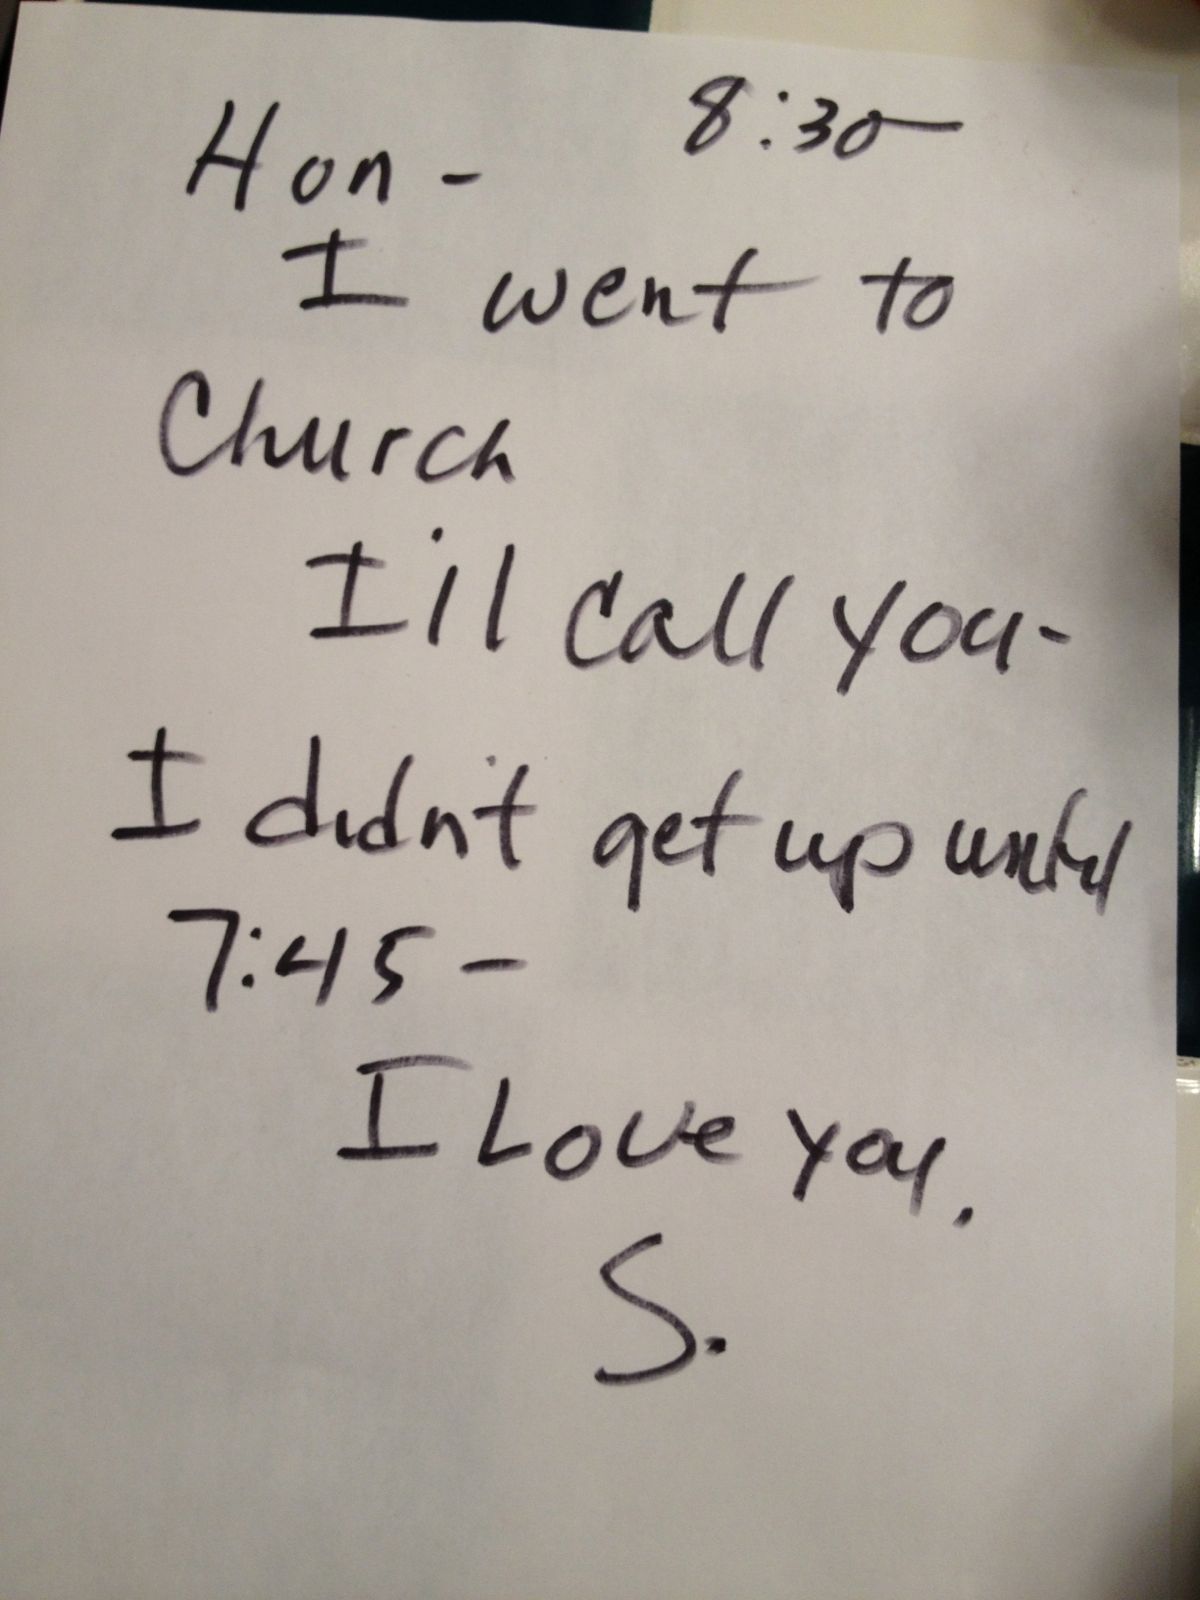 8:30
Hon -
I went to
Church
I'll call you-
I didn't get up until
7:45 -
I Love you.
S.